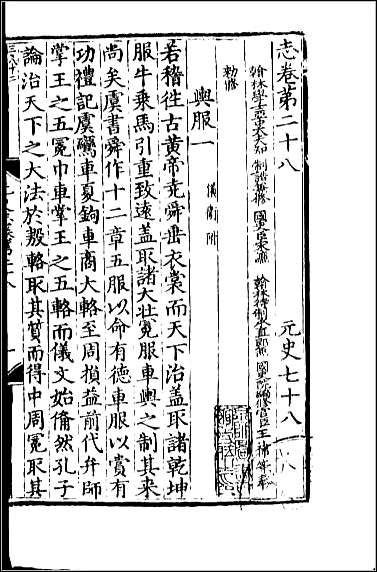 志卷第二十八 元史七十八
翰林學士亞中大夫知 制誥兼修 國史臣宋濂 翰林待制承直郎兼 國史院編修官臣王禕等奉
勑修
輿服一 儀衛附
若稽往古黄帝堯舜垂衣裳而天下治蓋取諸乾坤
服牛乘馬引重致遠蓋取諸大壯冕服車輿之制其来
尚矣虞書舜作十二章五服以命有德車服以賞有
功禮記虞鸞車夏鉤車商大輅至周損益前代弁師
掌王之五冕巾車掌王之五輅而儀文始備然孔子
論治天下之大法於殷輅取其質而得中周冕取其